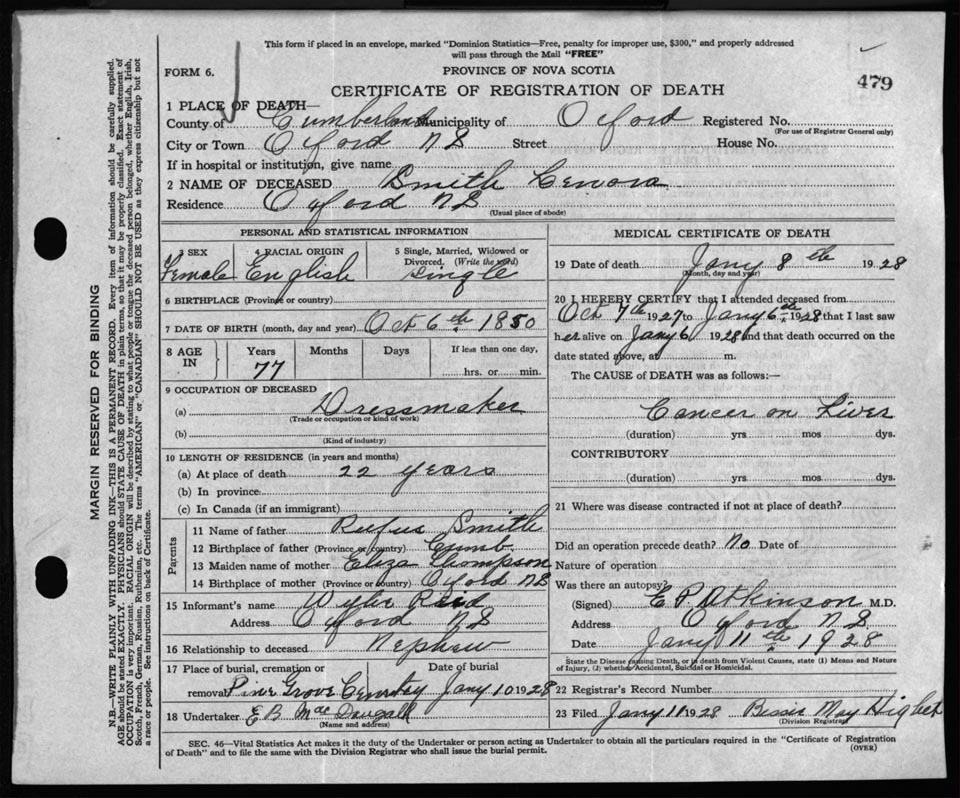 This form if placed in an envelope, marked "Dominion Statistics—Free, penalty for improper use, $300," and properly addressed
will pass through the Mail "FREE"
FORM 6.
PROVINCE OF NOVA SCOTIA
479
CERTIFICATE OF REGISTRATION OF DEATH
1 PLACE OF DEATH—
County of Cumberland Municipality of Oxford Registered No.
(For use of Registrar General only)
City or Town Oxford N S Street House No.
If in hospital or institution, give name
2 NAME OF DECEASED Smith Cenora
Residence Oxford N S
(Usual place of abode)
PERSONAL AND STATISTICAL INFORMATION
3 SEX Female
4 RACIAL ORIGIN English
5 Single, Married, Widowed or Divorced. (Write the word) Single
6 BIRTHPLACE (Province or country)
7 DATE OF BIRTH (month, day and year) Oct 6th 1850
8 AGE IN Years 77 Months Days If less than one day, hrs. or min.
9 OCCUPATION OF DECEASED
(a) Dressmaker
(Trade or occupation or kind of work)
(b)
(Kind of industry)
10 LENGTH OF RESIDENCE (in years and months)
(a) At place of death 22 years
(b) In province
(c) In Canada (if an immigrant)
Parents
11 Name of father Rufus Smith
12 Birthplace of father (Province or country) Cumb.
13 Maiden name of mother Eliza Thompson
14 Birthplace of mother (Province or country) Oxford N S
15 Informant's name Wylie Reid
Address Oxford N S
16 Relationship to deceased Nephew
17 Place of burial, cremation or removal Pine Grove Cemetay Date of burial Jany 10 1928
18 Undertaker E B MacDougall
(Name and address)
MEDICAL CERTIFICATE OF DEATH
19 Date of death Jany 8th 1928
(Month, day and year)
20 I HEREBY CERTIFY that I attended deceased from
Oct 7th 1927 to Jany 6th 1928 that I last saw
her alive on Jany 6 1928 and that death occurred on the
date stated above, at m.
The CAUSE of DEATH was as follows:—
Cancer on Liver
(duration) yrs mos dys.
CONTRIBUTORY
(duration) yrs mos dys.
21 Where was disease contracted if not at place of death?
Did an operation precede death? No Date of
Nature of operation
Was there an autopsy?
(Signed) E P Atkinson M.D.
Address Oxford N.S.
Date Jany 11th 1928
State the Disease causing Death, or in death from Violent Causes, state (1) Means and Nature
of Injury, (2) whether Accidental, Suicidal or Homicidal.
22 Registrar's Record Number
23 Filed Jany 11 1928 Bessie May Higbet
(Division Registrar)
SEC. 46—Vital Statistics Act makes it the duty of the Undertaker or person acting as Undertaker to obtain all the particulars required in the "Certificate of Registration
of Death" and to file the same with the Division Registrar who shall issue the burial permit.
(OVER)
MARGIN RESERVED FOR BINDING
N.B.—WRITE PLAINLY WITH UNFADING INK—THIS IS A PERMANENT RECORD. Every item of information should be carefully supplied.
AGE should be stated EXACTLY. PHYSICIANS should STATE CAUSE OF DEATH in plain terms, so that it may be properly classified. Exact statement of
OCCUPATION is very important. RACIAL ORIGIN will be described by stating to what people or tongue the deceased person belonged, whether English, Irish,
Scotch, French, German, Russian, Ruthenian, etc. The terms "AMERICAN" or "CANADIAN" SHOULD NOT BE USED as they express citizenship but not
a race or people. See instructions on back of Certificate.